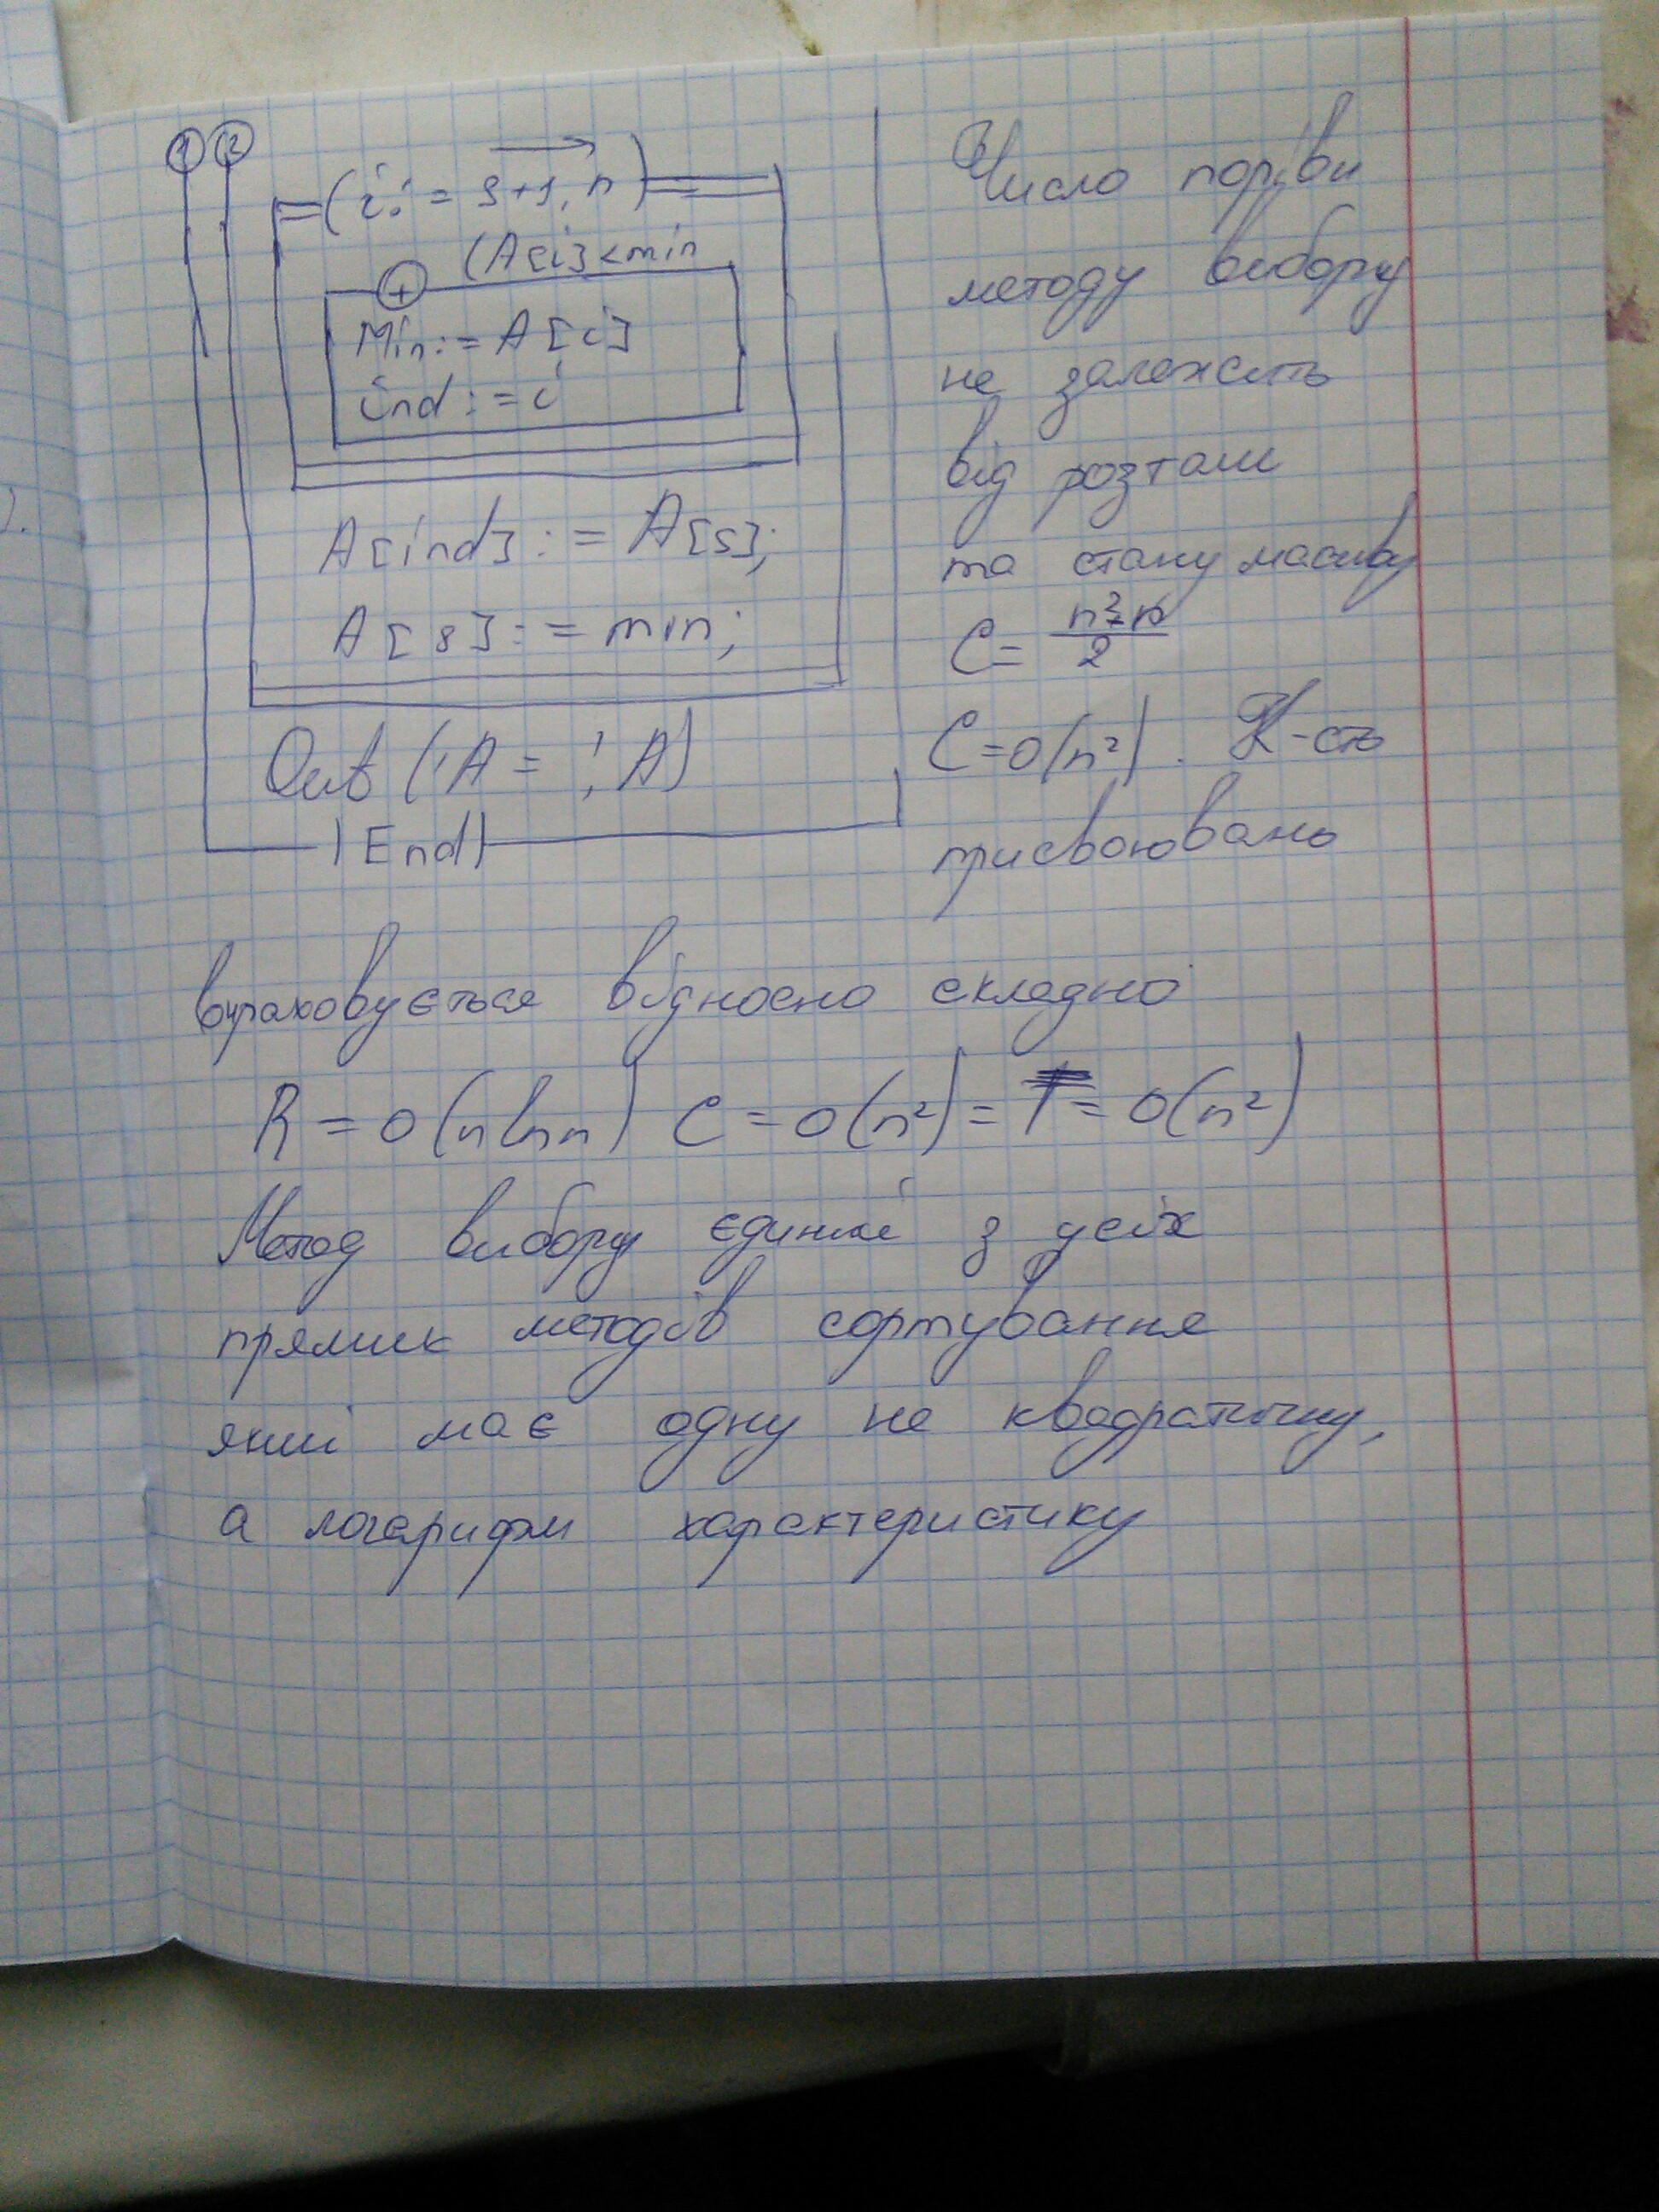 ① ②
(i := s+1, n)
(A[i]<min
+
Min:= A[i]
ind := i
A[ind] := A[s];
A[s] := min;
Out ('A = ', A)
End
Число порівн
методу вибору
не залежить
від розташ
та стану масиву
C = n²-n / 2
C=O(n²). К-сть
присвоювань
вираховується відносно складно
R = O(n ln n) C = O(n²) = T = O(n²)
Метод вибору єдиний з усіх
прямих методів сортування
який має одну не квадратичну,
а логарифм характеристику